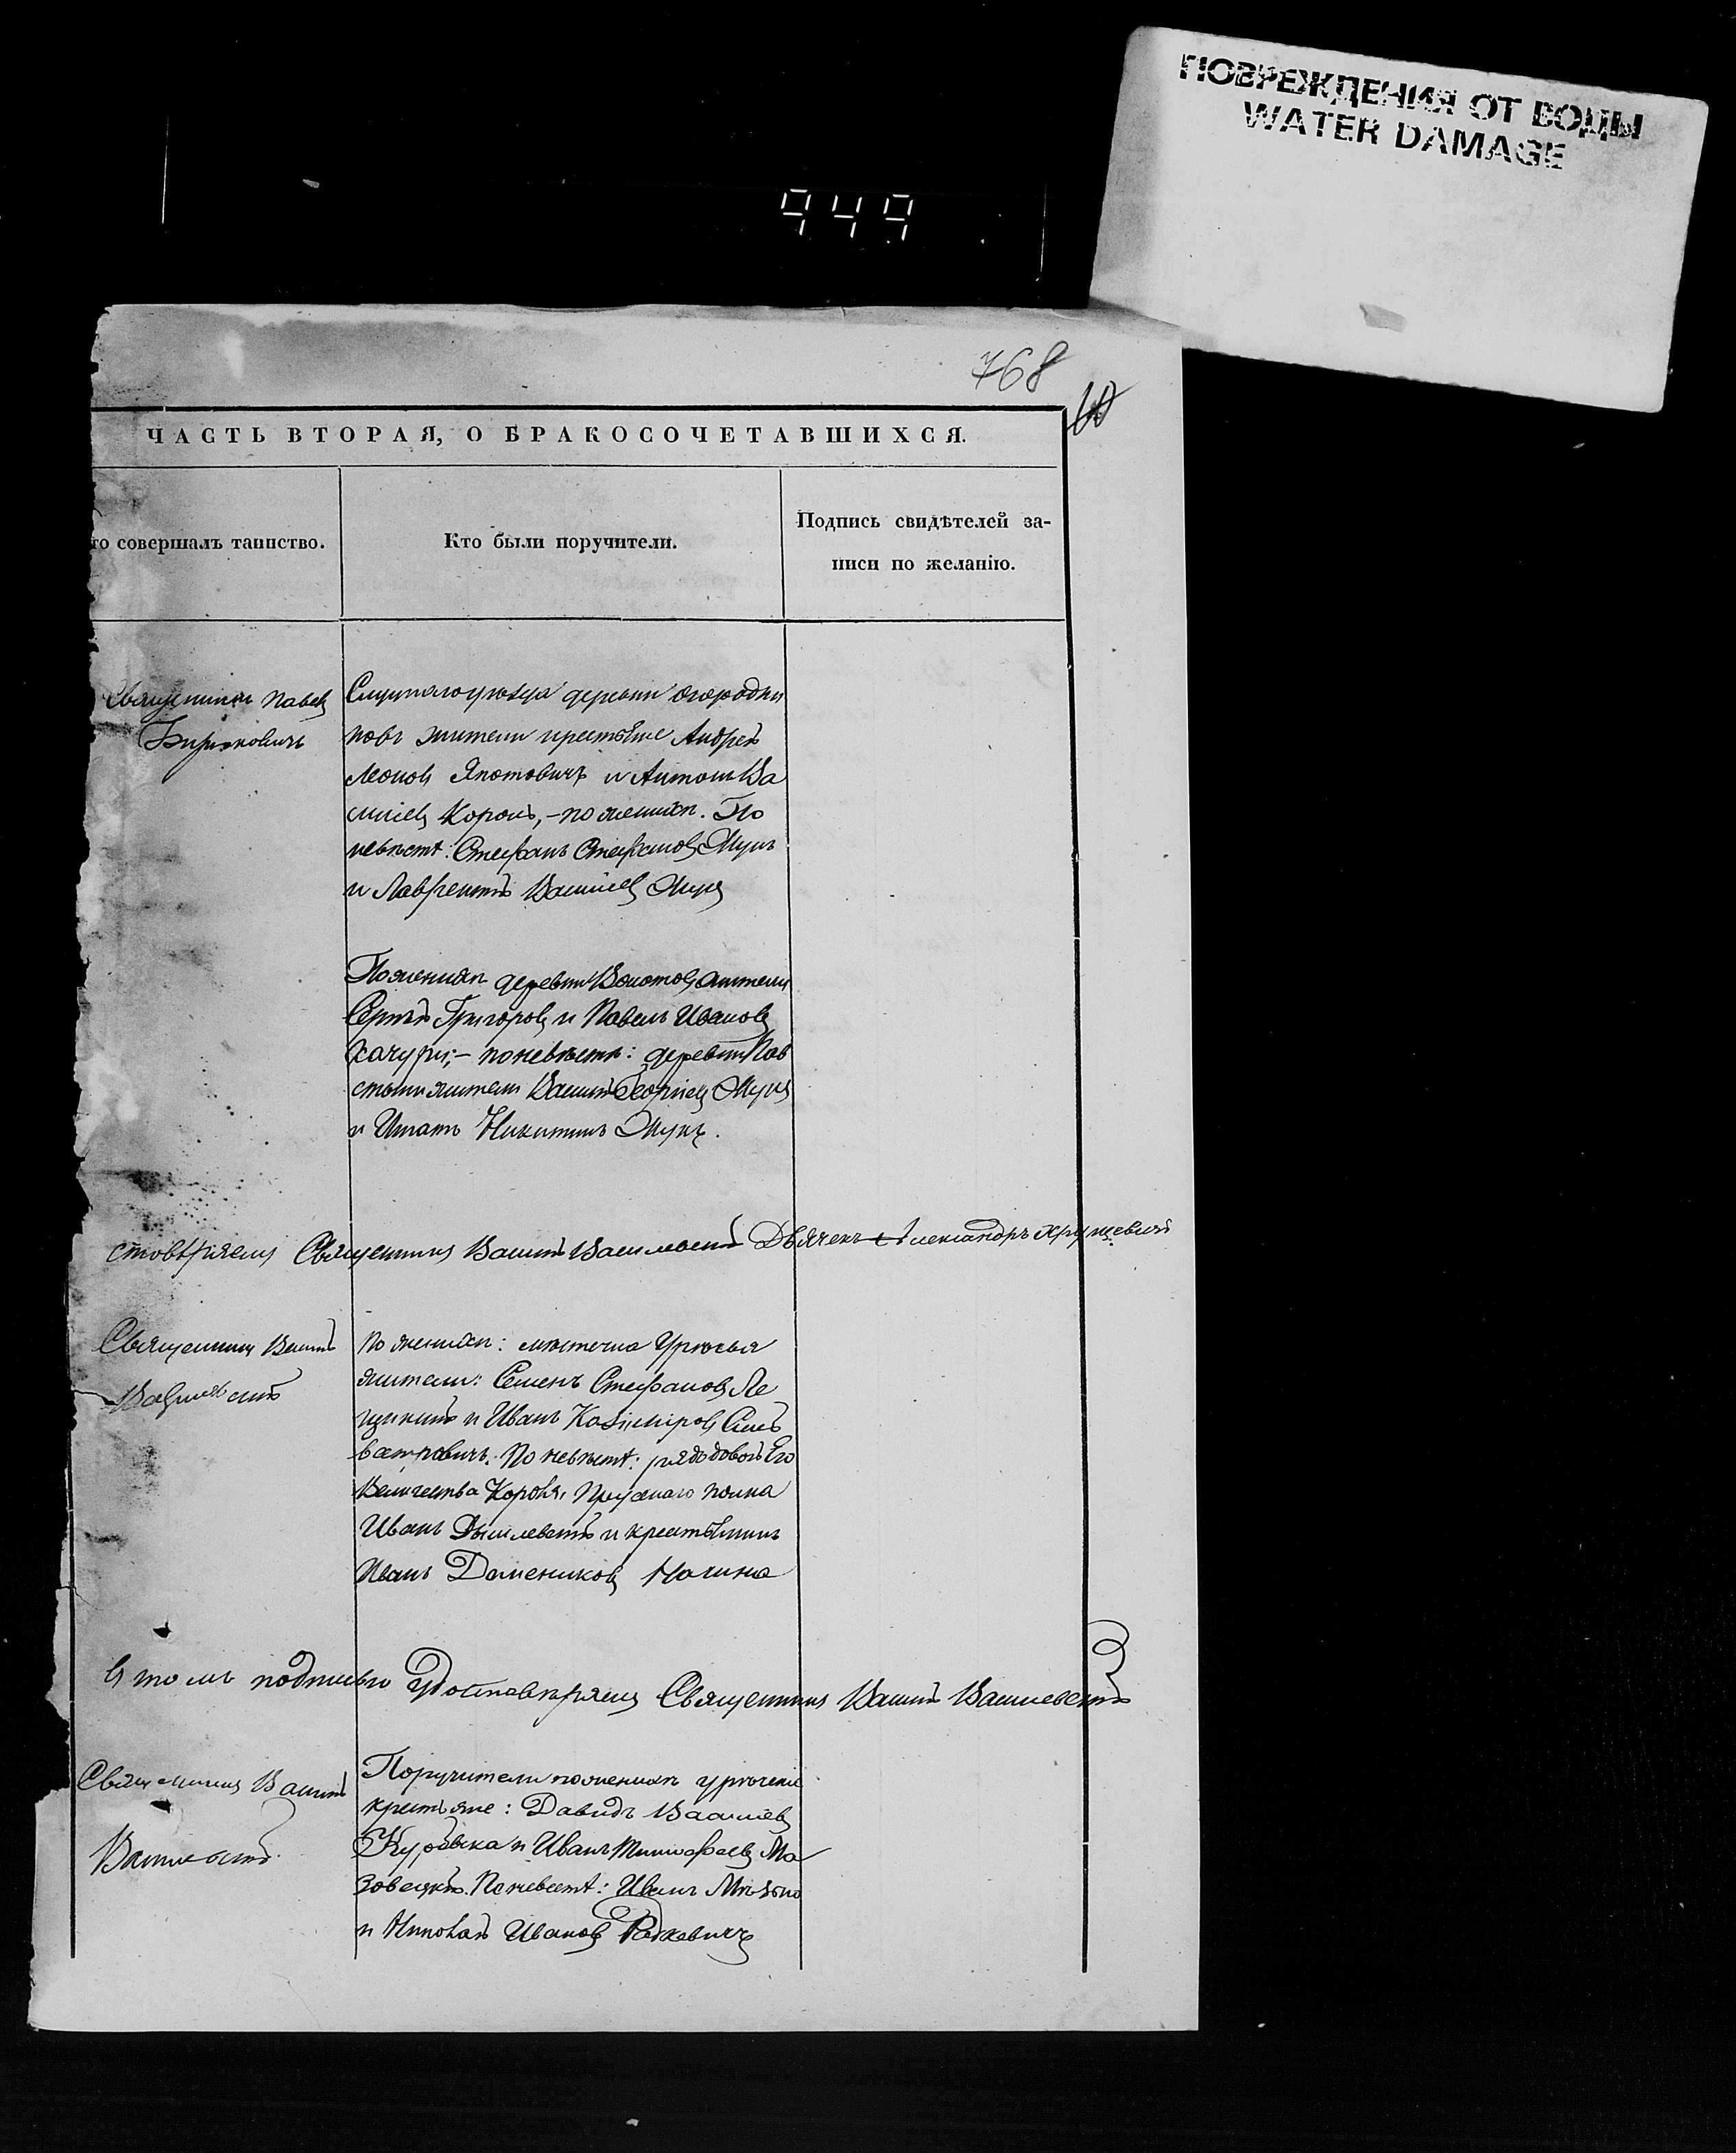 ПОВРЕЖДЕНИЯ ОТ ВОДЫ
WATER DAMAGE
949
768
ЧАСТЬ ВТОРАЯ, О БРАКОСОЧЕТАВШИХСЯ.
то совершалъ таинство.
Кто были поручители.
Подпись свидѣтелей за-
писи по желанію.
Священникъ Павелъ
Бирюковичъ
деревни Огородни
ковъ жители крестьяне Андрей
Леоновъ и Антонъ Ва
силіевъ Король, – по женихѣ. По
невѣстѣ: Стефанъ Стефановъ Жукъ
и Лаврентій Василіевъ Жукъ
По женихѣ деревни жители
Сергѣй Григоровъ и Павелъ Ивановъ
Качуры; – по невѣстѣ: деревни
жители Василій Георгіевъ Жукъ
и Игнатъ Никитинъ Жукъ.
стовѣряемъ Священникъ Василій Василевскій Дьячекъ Александръ
Священникъ Василій
Василевскій
По женихѣ: мѣстечка Урѣчья
жители: Семенъ Стефановъ Ле
и Иванъ Казиміровъ
По невѣстѣ: рядовой Его
Величества Короля Прусскаго полка
Иванъ и крестьянинъ
Иванъ Домениковъ
въ томъ подписью Удостовѣряемъ Священникъ Василій Василевскій
Священникъ Василій
Василевскій
Поручители по женихѣ урѣчскіе
крестьяне: Давидъ Василіевъ
и Иванъ Тимофеевъ Ма
зовецкій. По невѣстѣ: Иванъ
и Николай Ивановъ Радкевичъ